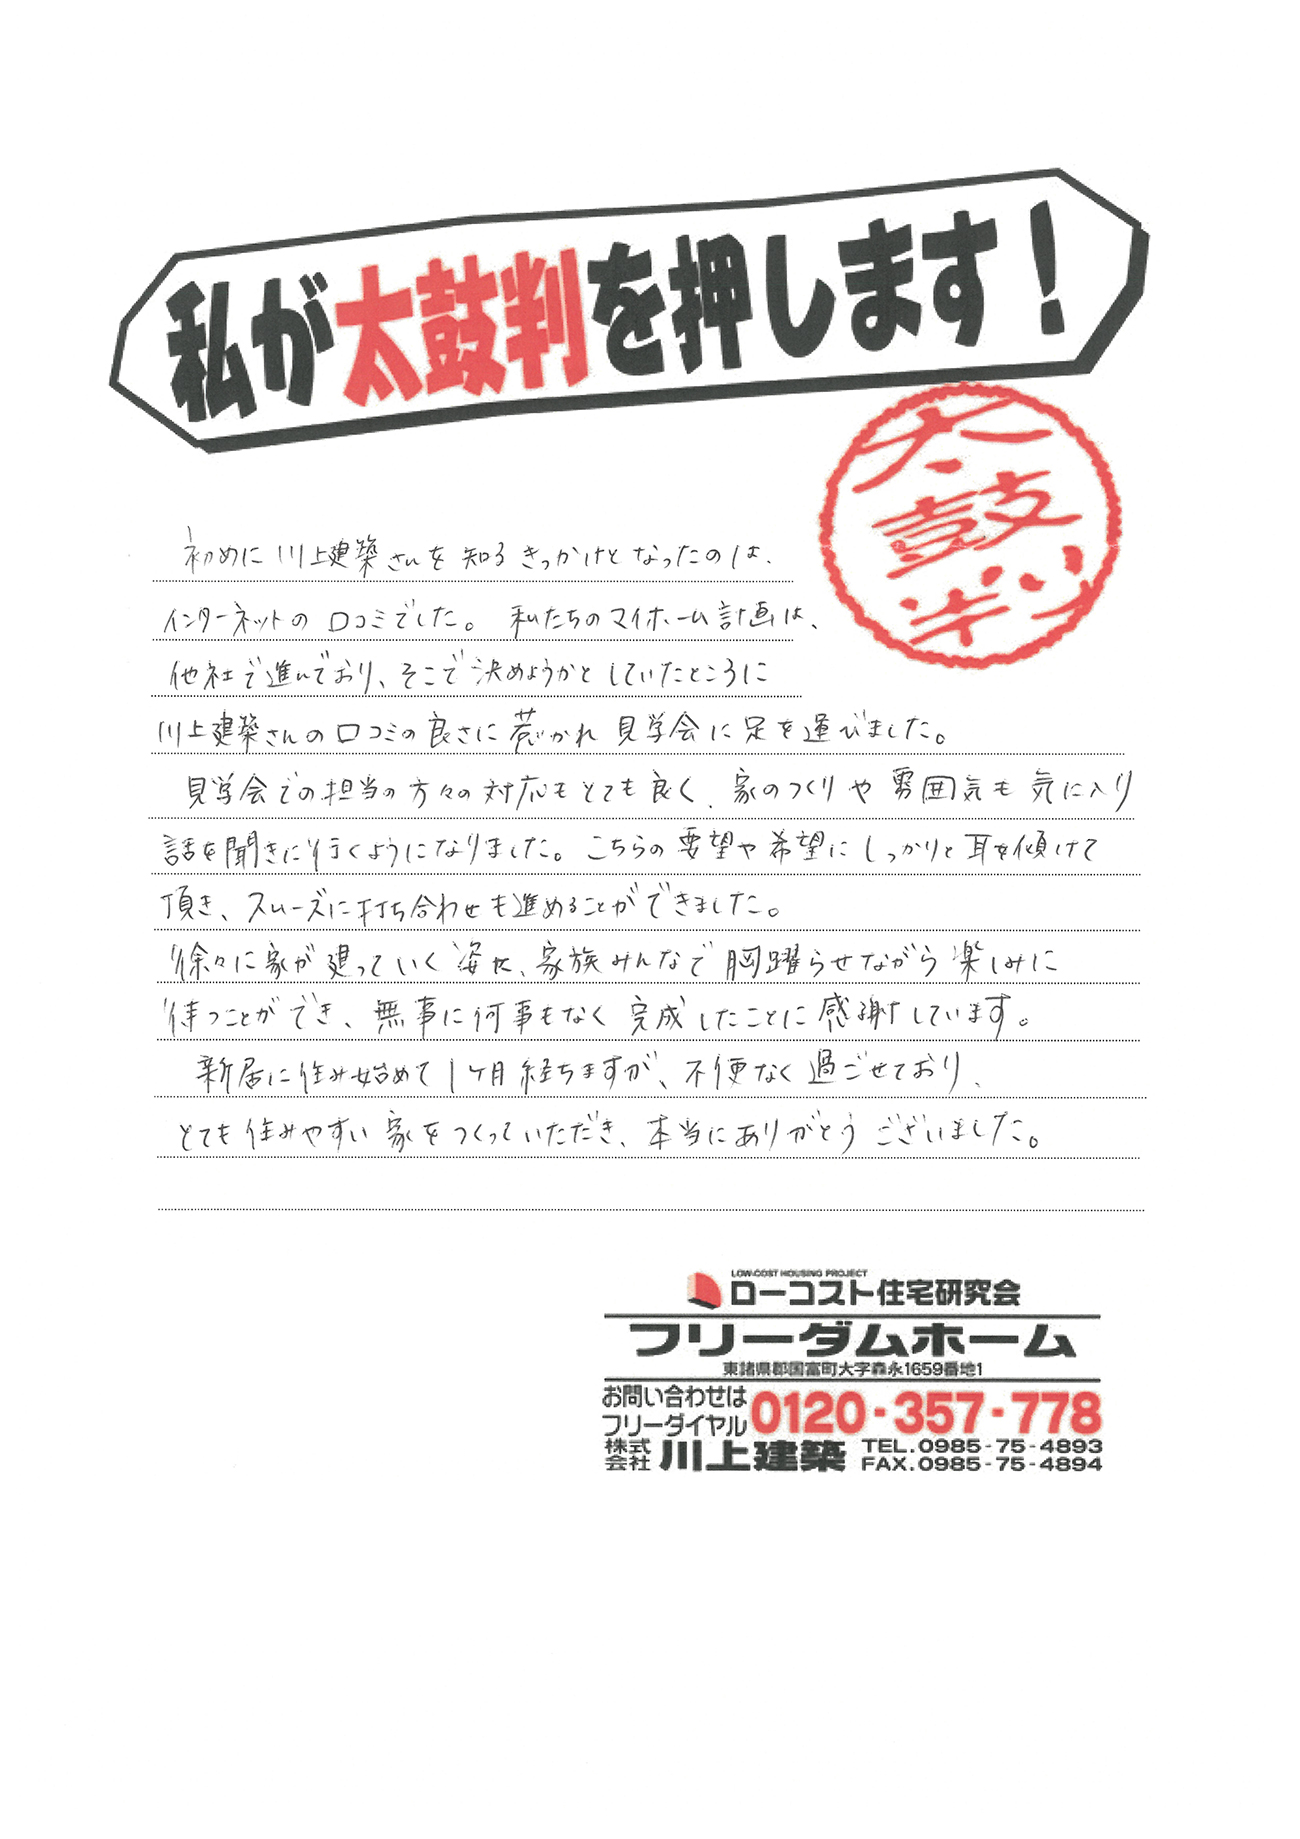 私が太鼓判を押します！
太鼓判
初めに川上建築さんを知るきっかけとなったのは、
インターネットの口コミでした。私たちのマイホーム計画は、
他社で進んでおり、そこで決めようかとしていたところに
川上建築さんの口コミの良さに惹かれ見学会に足を運びました。
見学会での担当の方々の対応もとても良く、家のつくりや雰囲気も気に入り
話を聞きに行くようになりました。こちらの要望や希望にしっかりと耳を傾けて
頂き、スムーズに打ち合わせも進めることができました。
徐々に家が建っていく姿に、家族みんなで胸躍らせながら楽しみに
待つことができ、無事に何事もなく完成したことに感謝しています。
新居に住み始めて1ヶ月経ちますが、不便なく過ごせており、
とても住みやすい家をつくっていただき、本当にありがとうございました。
LOW-COST HOUSING PROJECT
ローコスト住宅研究会
フリーダムホーム
東諸県郡国富町大字森永1659番地1
お問い合わせは
フリーダイヤル 0120-357-778
株式会社 川上建築 TEL.0985-75-4893
FAX.0985-75-4894